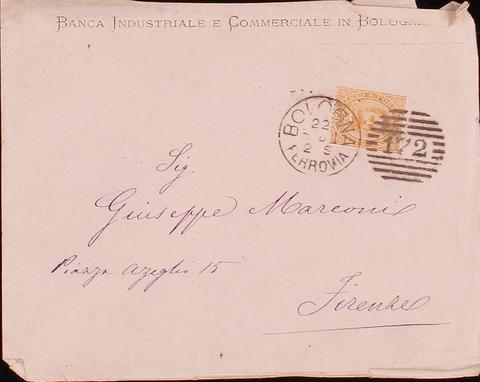 BANCA INDUSTRIALE E COMMERCIALE IN BOLOGNA
BOLOGNA
22
2 S
FERROVIA
172
Sig.
Giuseppe Marconi
Piazza Azeglio 15
Firenze